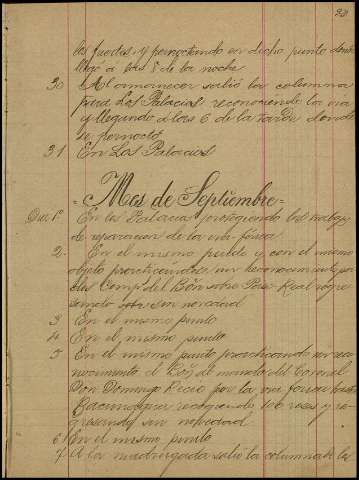 las fuerzas y pernoctando en dicho punto donde
llegó á las 8 de la noche
30 Al amanecer salió la columna
para Los Palacios reconociendo la via
y llegando á las 6 de la tarde donde
se pernoctó
31 En Los Palacios
= Mes de Septiembre =
Dia 1º En los Palacios protegiendo los trabajos
de reparacion de la via-ferrea
2 - En el mismo pueblo y con el mismo
objeto practicandose un reconocimiento por
dos Comp.s del Bón sobre Paso Real regre
sando sin novedad
3 En el mismo punto
4 En el mismo punto
5 En el mismo punto practicando un reco
nocimiento el Bón al mando del Coronel
Don Domingo Recio por la via ferrea hasta
Bacunagua recogiendo 106 reses y re
gresando sin novedad
6 En el mismo punto
7 A la madrugada salió la columna de la